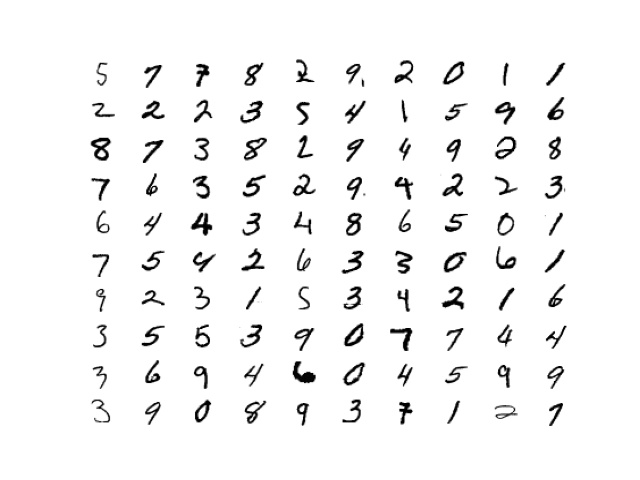 5 7 7 8 2 9 2 0 1 1
2 2 2 3 5 4 1 5 9 6
8 7 3 8 2 9 4 9 2 8
7 6 3 5 2 9 4 2 2 3
6 4 4 3 4 8 6 5 0 1
7 5 9 2 6 3 3 0 6 1
9 2 3 1 5 3 4 2 1 6
3 5 5 3 9 0 7 7 4 4
3 6 9 4 6 0 4 5 9 9
3 9 0 8 9 3 7 1 2 7